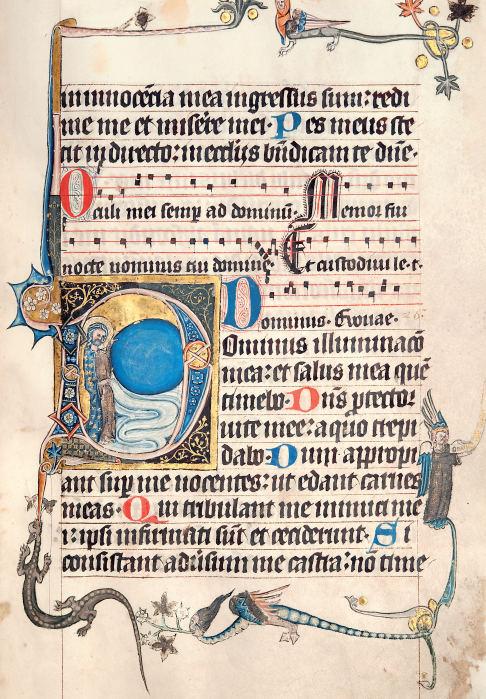 in innocētia mea ingressus sum: redi
me me et misēre mei. Pes meus ste
tit in directo: in ecclijs bn̄dicam te dn̄e.
Oculi mei semp ad dominū. Memor fui
nocte nominis tui domine. Et custodiui le. t.
Dominus. Euouae.
Dominus illuminacō
mea: et salus mea quē
timebo. Dn̄s ꝓtector
uite mee: a quo trepi
dabo. Dum appropi
ant suꝑ me nocentes: ut edant carnes
meas. Qui tribulant me inimici me
i: ipsi infirmati sūt et ceciderunt. Si
consistant aduersum me castra: nō time